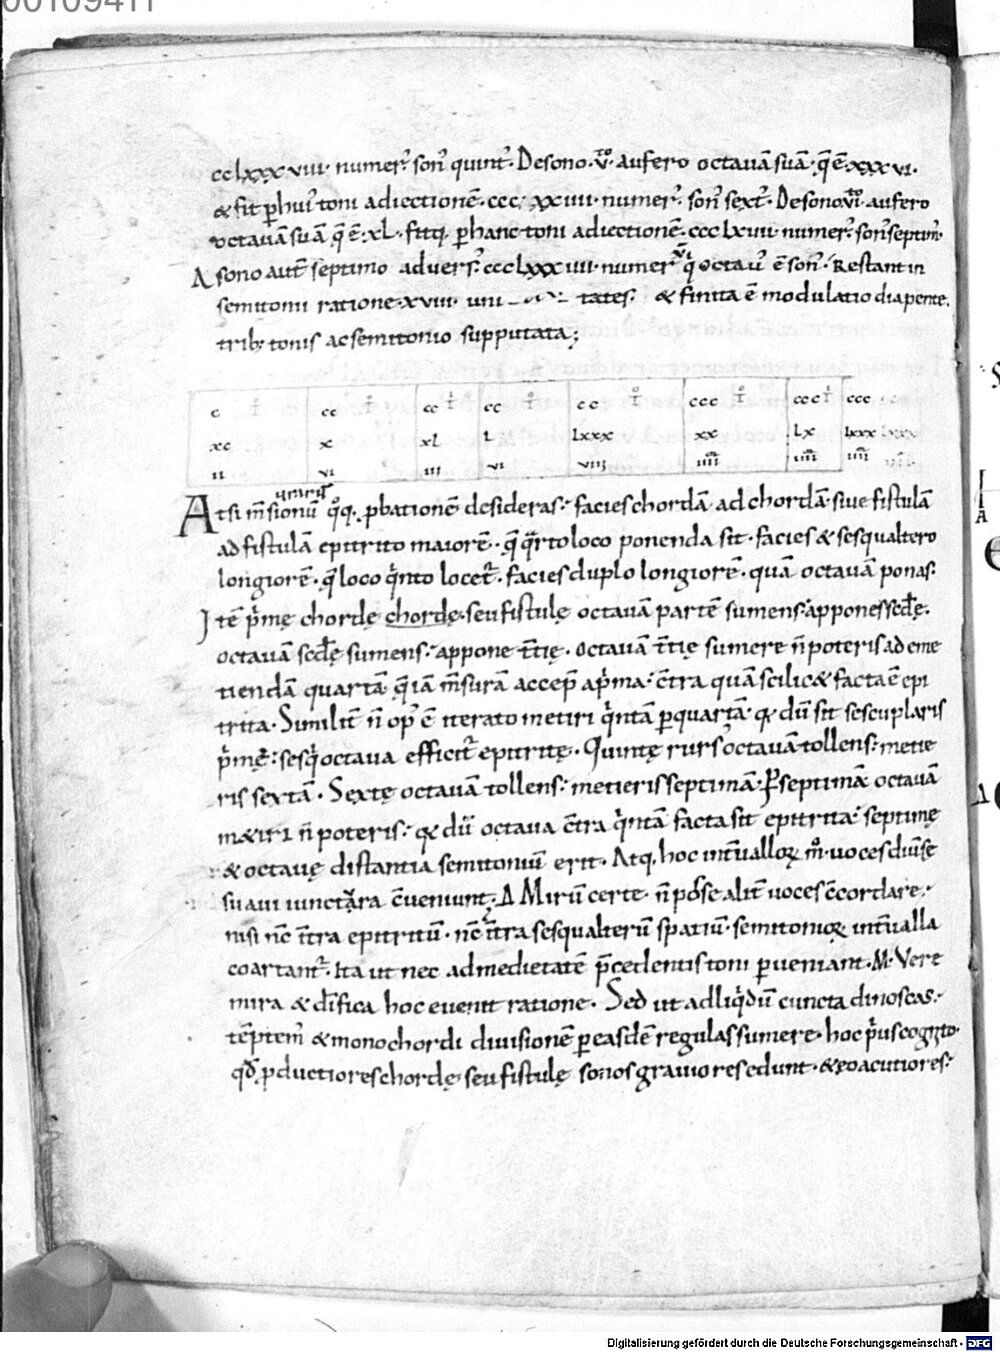 00109411
cclxxxviii· numer᷒ son᷒ quint᷒· De sono· v̊· aufero octauā suā· q̄ ē· xxxvi·
& fit ꝑ hui᷒ toni adiectionē· ccc· xxiiii· numer᷒· son᷒ sext᷒· De sono vi̊· aufero
octauā suā q̄ ē· xL· fitq; ꝑ hanc toni adiectionē· ccclxiiii· numer᷒ son᷒ septim᷒·
A sono aut̄ septimo aduers᷒ ccclxxxiiii· numer᷒ qͥ octau᷒ ē son᷒· Restant in
semitonii ratione· xviii· uni tates· & finita ē modulatio diapente·
trib; tonis ac semitonio supputata;
c t̊ cc t̊ cc t̊ cc t̊ cc t̊ ccc t̊ ccc t̊ ccc
xc x xl L lxxx xx Lx lxxx
ii vi iii vi viii iiii iiii iiii
At si m̄sionū qͦq; ꝓbationē desideras· facies chordā ad chordā siue fistulā
ad fistulā epitrito maiorē· q̄ qͣrto loco ponenda sit· facies & sesqualtero
longiorē· q̄ loco qͥnto locet᷒· facies duplo longiorē· quā octauā ponas·
Itē pͥmę chordę chordę· seu fistulę octauā partē sumens· appones scd̄ę·
octauā scd̄ę sumens· appone t̄tię· octauā t̄tię sumere n̄ poteris ad eme
tiendā quartā· q̄ iā m̄surā accep̄ a pͥma· c̄tra quā scilic& facta ē epi
trita· Similit̄ n̄ op᷒ ē iterato metiri qͥntā ꝑ quartā· qꝫ dū sit sescuplaris
pͥmę· sesqͥoctaua efficit᷒ epitritę· Quintę rurs᷒ octauā tollens· metie
ris sextā· Sextę octauā tollens· metieris septimā· Ꝑ septimā octauā
m&iri n̄ poteris· qꝫ dū octaua c̄tra qͥntā facta sit epitrita· septimę
& octauę distantia semitoniū erit· Atq; hoc int̄ualloꝝ mͦ· uoces diuīsę
suaui iunctͣra c̄ueniunt· Δ Mirū certe n̄ pósse alit̄ uoces c̄cordare·
nisi nc̄ īt̄ra epitritū· nc̄ īt̄ra sesqualterū spatiū· semitonioꝝ int̄ualla
coartant᷒· Ita ut nec ad medietatē p̄cedentis toni ꝑueniant· M· Vere
mira & diīfica hoc euenit ratione· Sed ut ad liqͥdū cuncta dinoscas·
tēptem᷒ & monochordi diuisionē ꝑ easdē regulas sumere· hoc pͥus cognito·
qd̄ ꝓductiores chordę seu fistulę sonos grauiores edunt· &
Digitalisierung gefördert durch die Deutsche Forschungsgemeinschaft - DFG